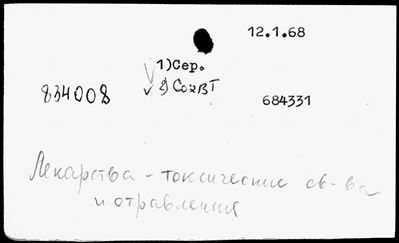 12.1.68
1) Сер.
834008
2) СохВТ
684331
Лекарства - токсические св-ва
и отравления